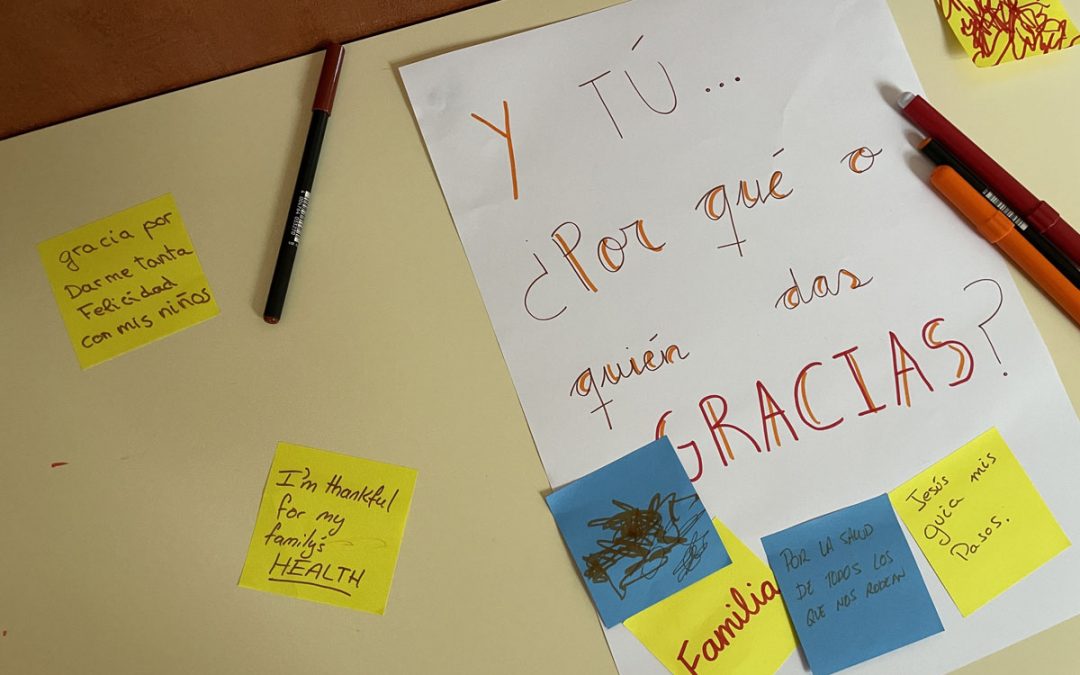 Y TÚ...
¿Por qué o
quién das
GRACIAS?
gracia por
Darme tanta
Felicidad
con mis niños
I'm thankful
for my
family's
HEALTH
Familia
POR LA SALUD
DE TODOS LOS
QUE NOS RODEAN
Jesús
guia mis
Pasos.